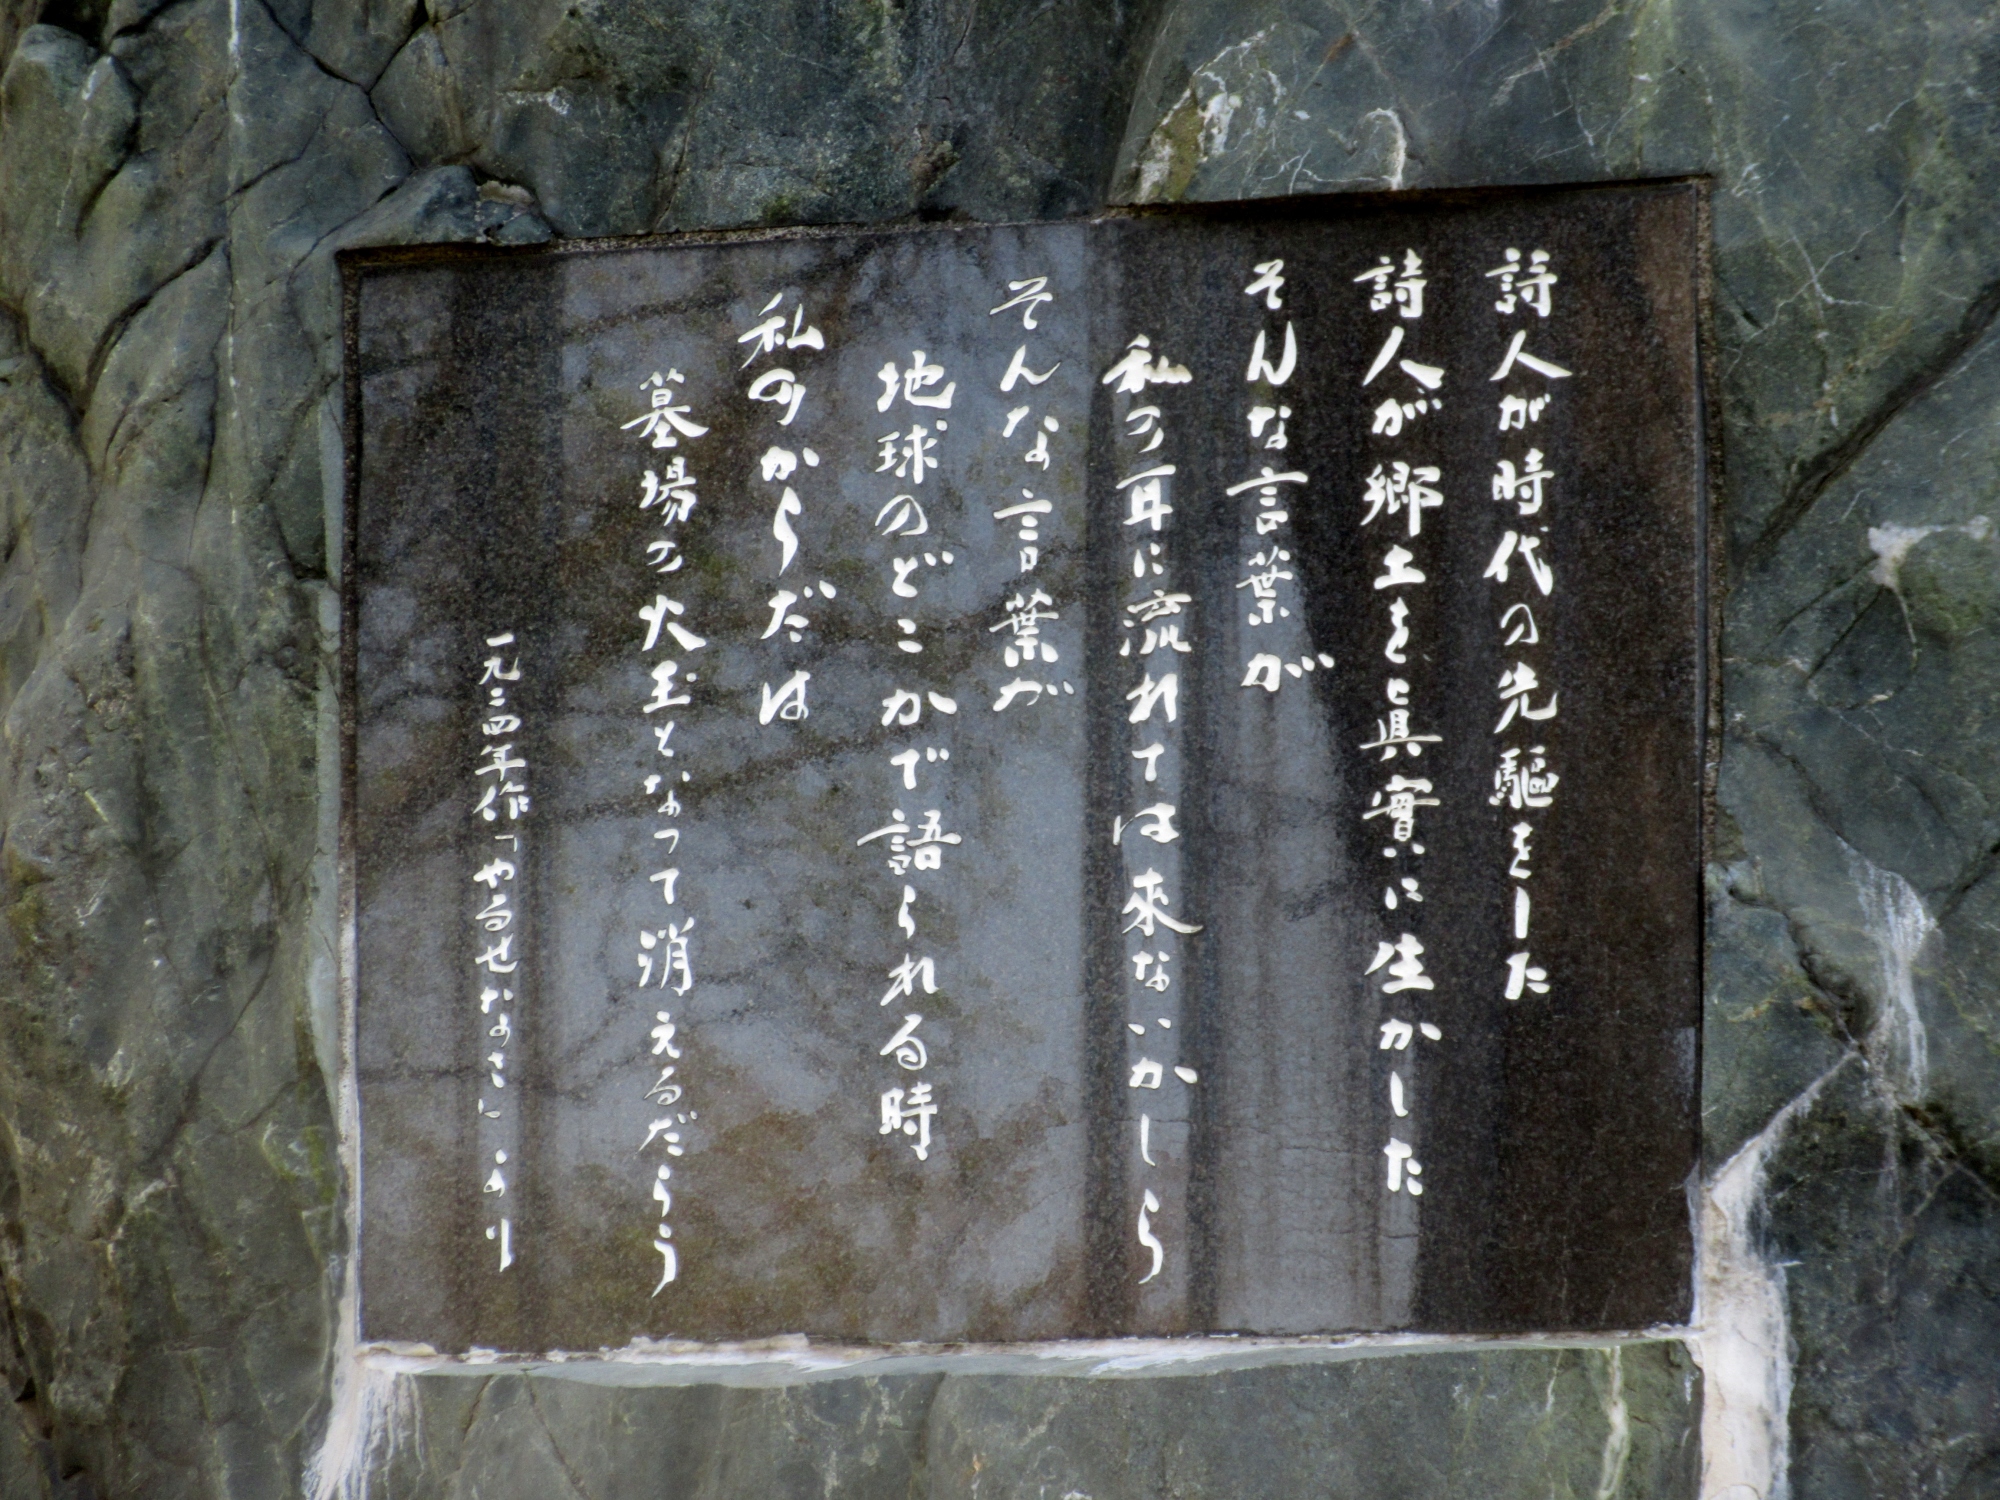 詩人が時代の先駆をした
詩人が郷土を眞實に生かした
そんな言葉が
私の耳に流れては来ないかしら
そんな言葉が
地球のどこかで語られる時
私のからだは
墓場の火玉となって消えるだらう
一九二四年作「やるせなさ」より